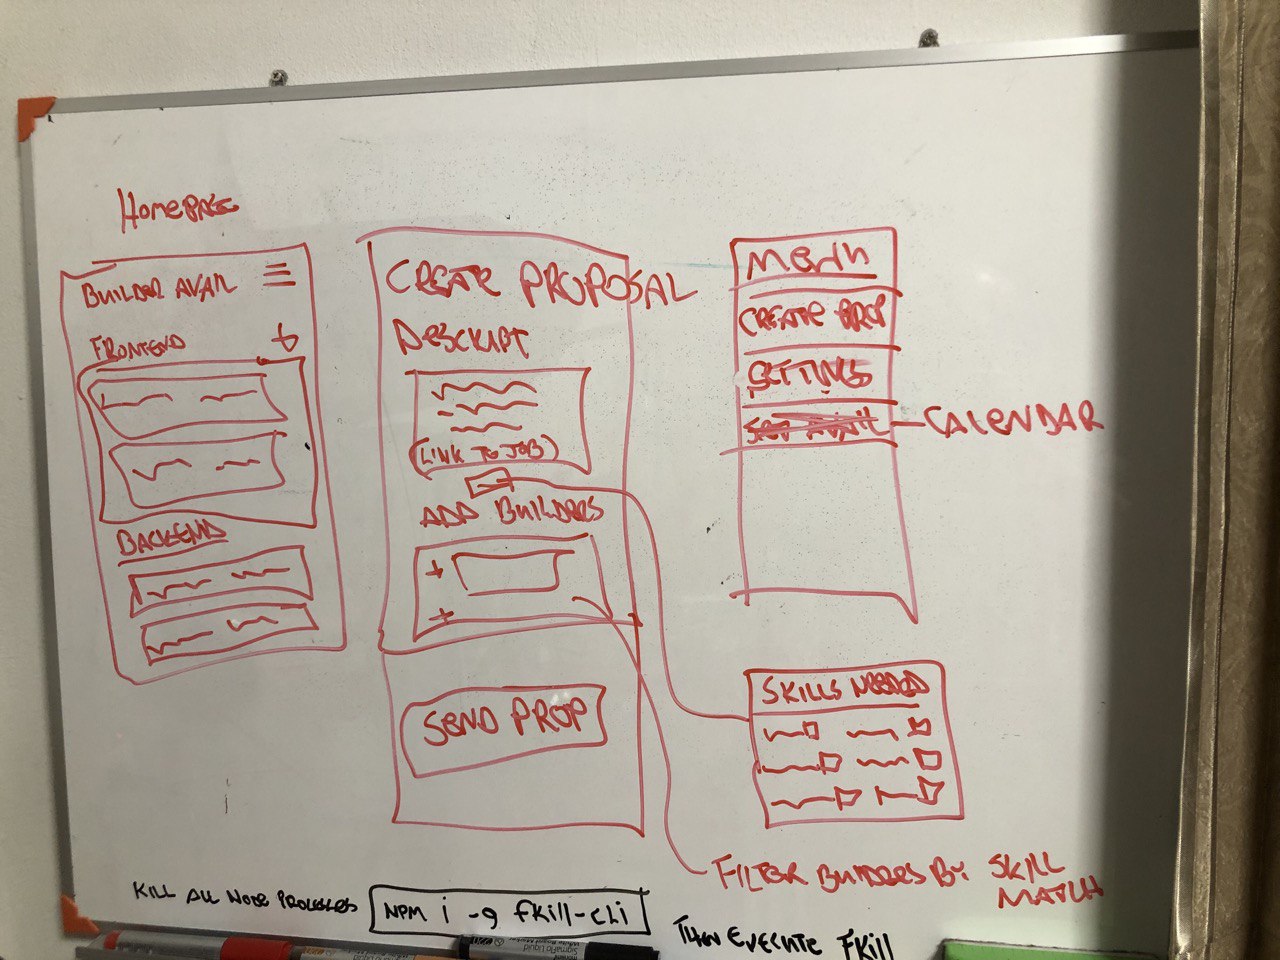 HOMEPAGE
BUILDER AVAIL
FRONTEND
BACKEND
CREATE PROPOSAL
DESCRIPT
(LINK TO JOB)
ADD BUILDERS
+
+
SEND PROP
MENU
CREATE PROP
SETTINGS
SET AVAIL
CALENDAR
SKILLS NEEDED
FILTER BUILDERS BY SKILL
MATCH
KILL ALL NODE PROCESSES
NPM i -g fkill-cli
THEN EXECUTE FKill